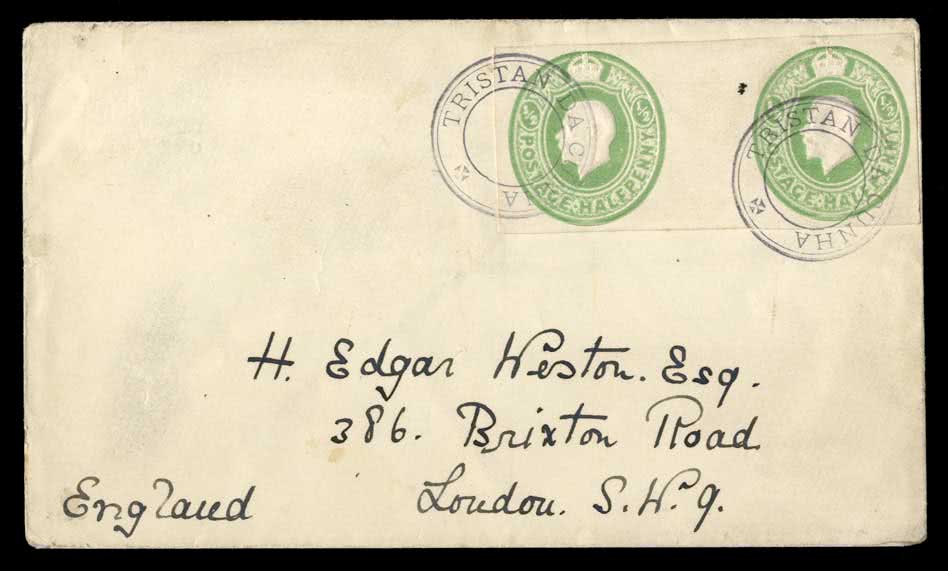 TRISTAN DA CUNHA
POSTAGE HALFPENNY
TRISTAN DA CUNHA
POSTAGE HALFPENNY
H. Edgar Weston. Esq.
386. Brixton Road
London. S.W.9.
England